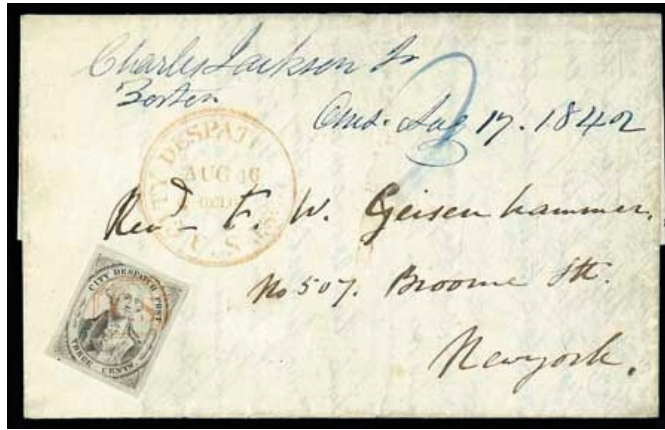 Charles Jackson Jr
Boston
Ans. Aug 17. 1842
2
U.S. CITY DESPATCH POST
AUG 16
Revd F. W. Geisenhammer,
No 507. Broome Stt.
Newyork.
CITY DESPATCH POST
THREE CENTS.